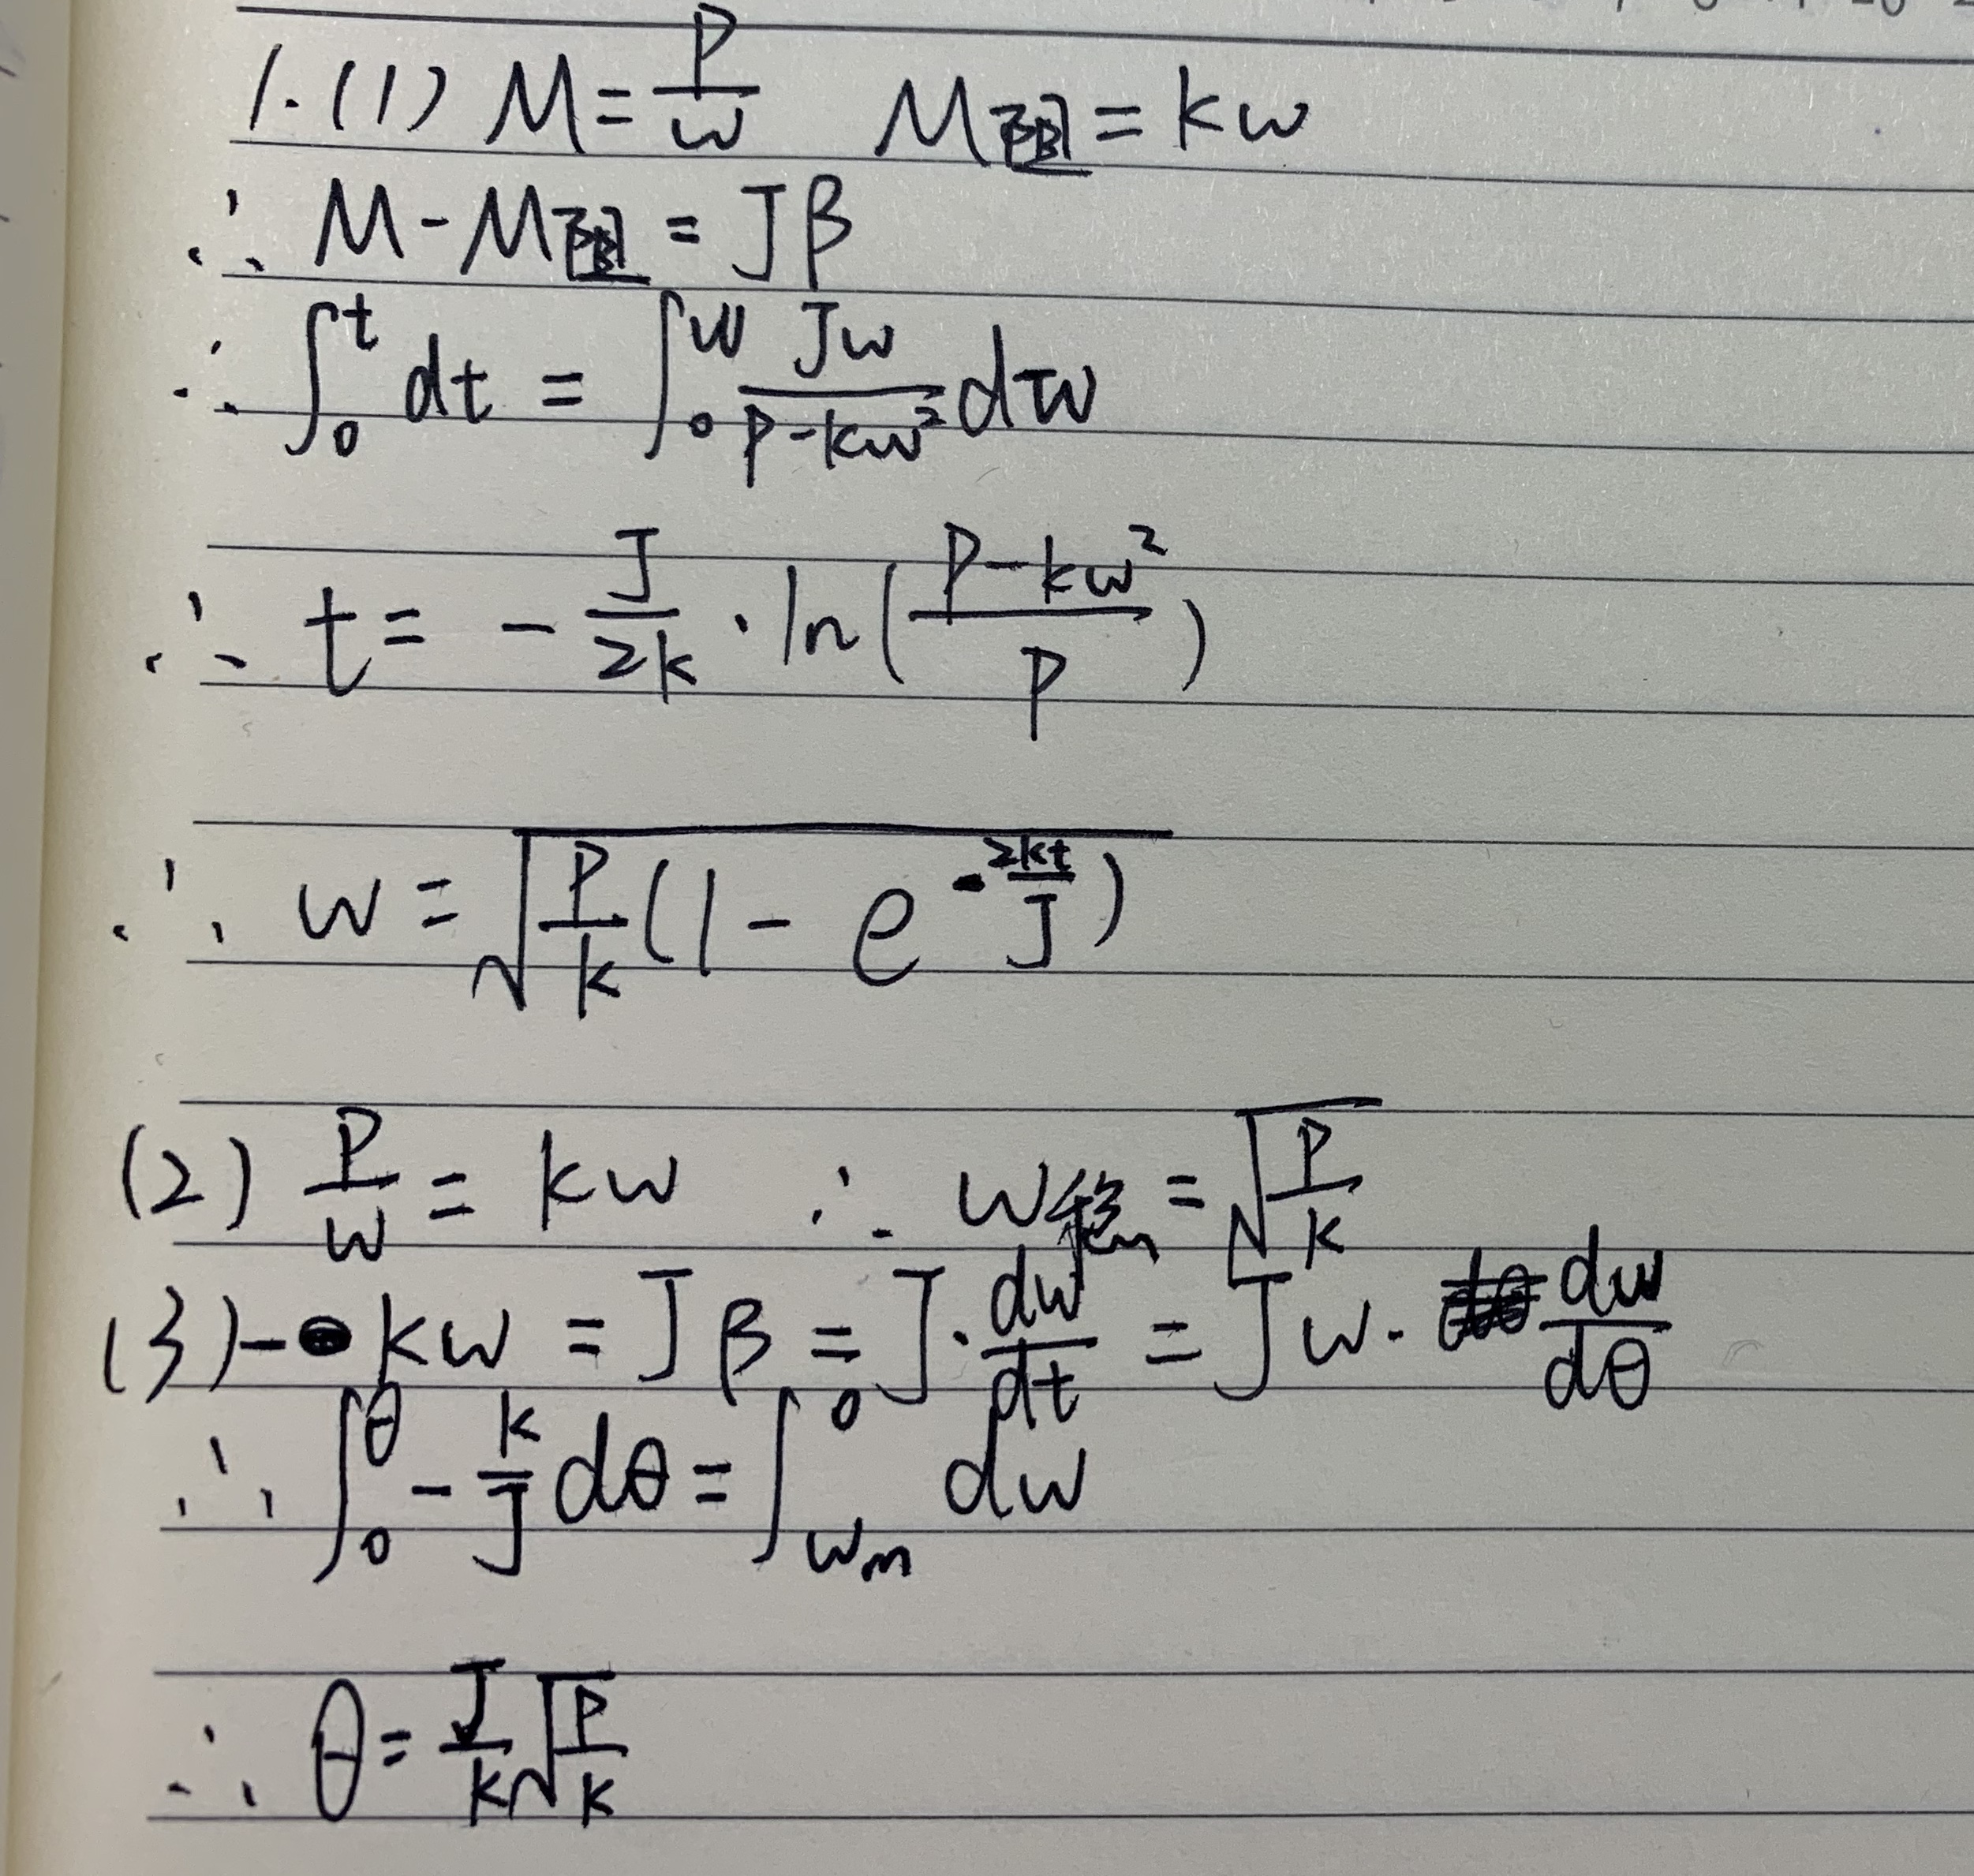 1.(1) M=P/w M阻=kw
∴ M-M阻=Jβ
∴ ∫₀ᵗ dt = ∫₀ʷ Jw/(P-kw²) dw
∴ t= -J/2k · ln((P-kw²)/P)
∴ w=√(P/k(1-e^(-2kt/J)))
(2) P/w = kw ∴ w稳=√(P/k)
(3)-kw=Jβ=J·dw/dt=Jw·dw/dθ
∴ ∫₀^θ -k/J dθ=∫_wm^0 dw
∴ θ=J/k√(P/k)